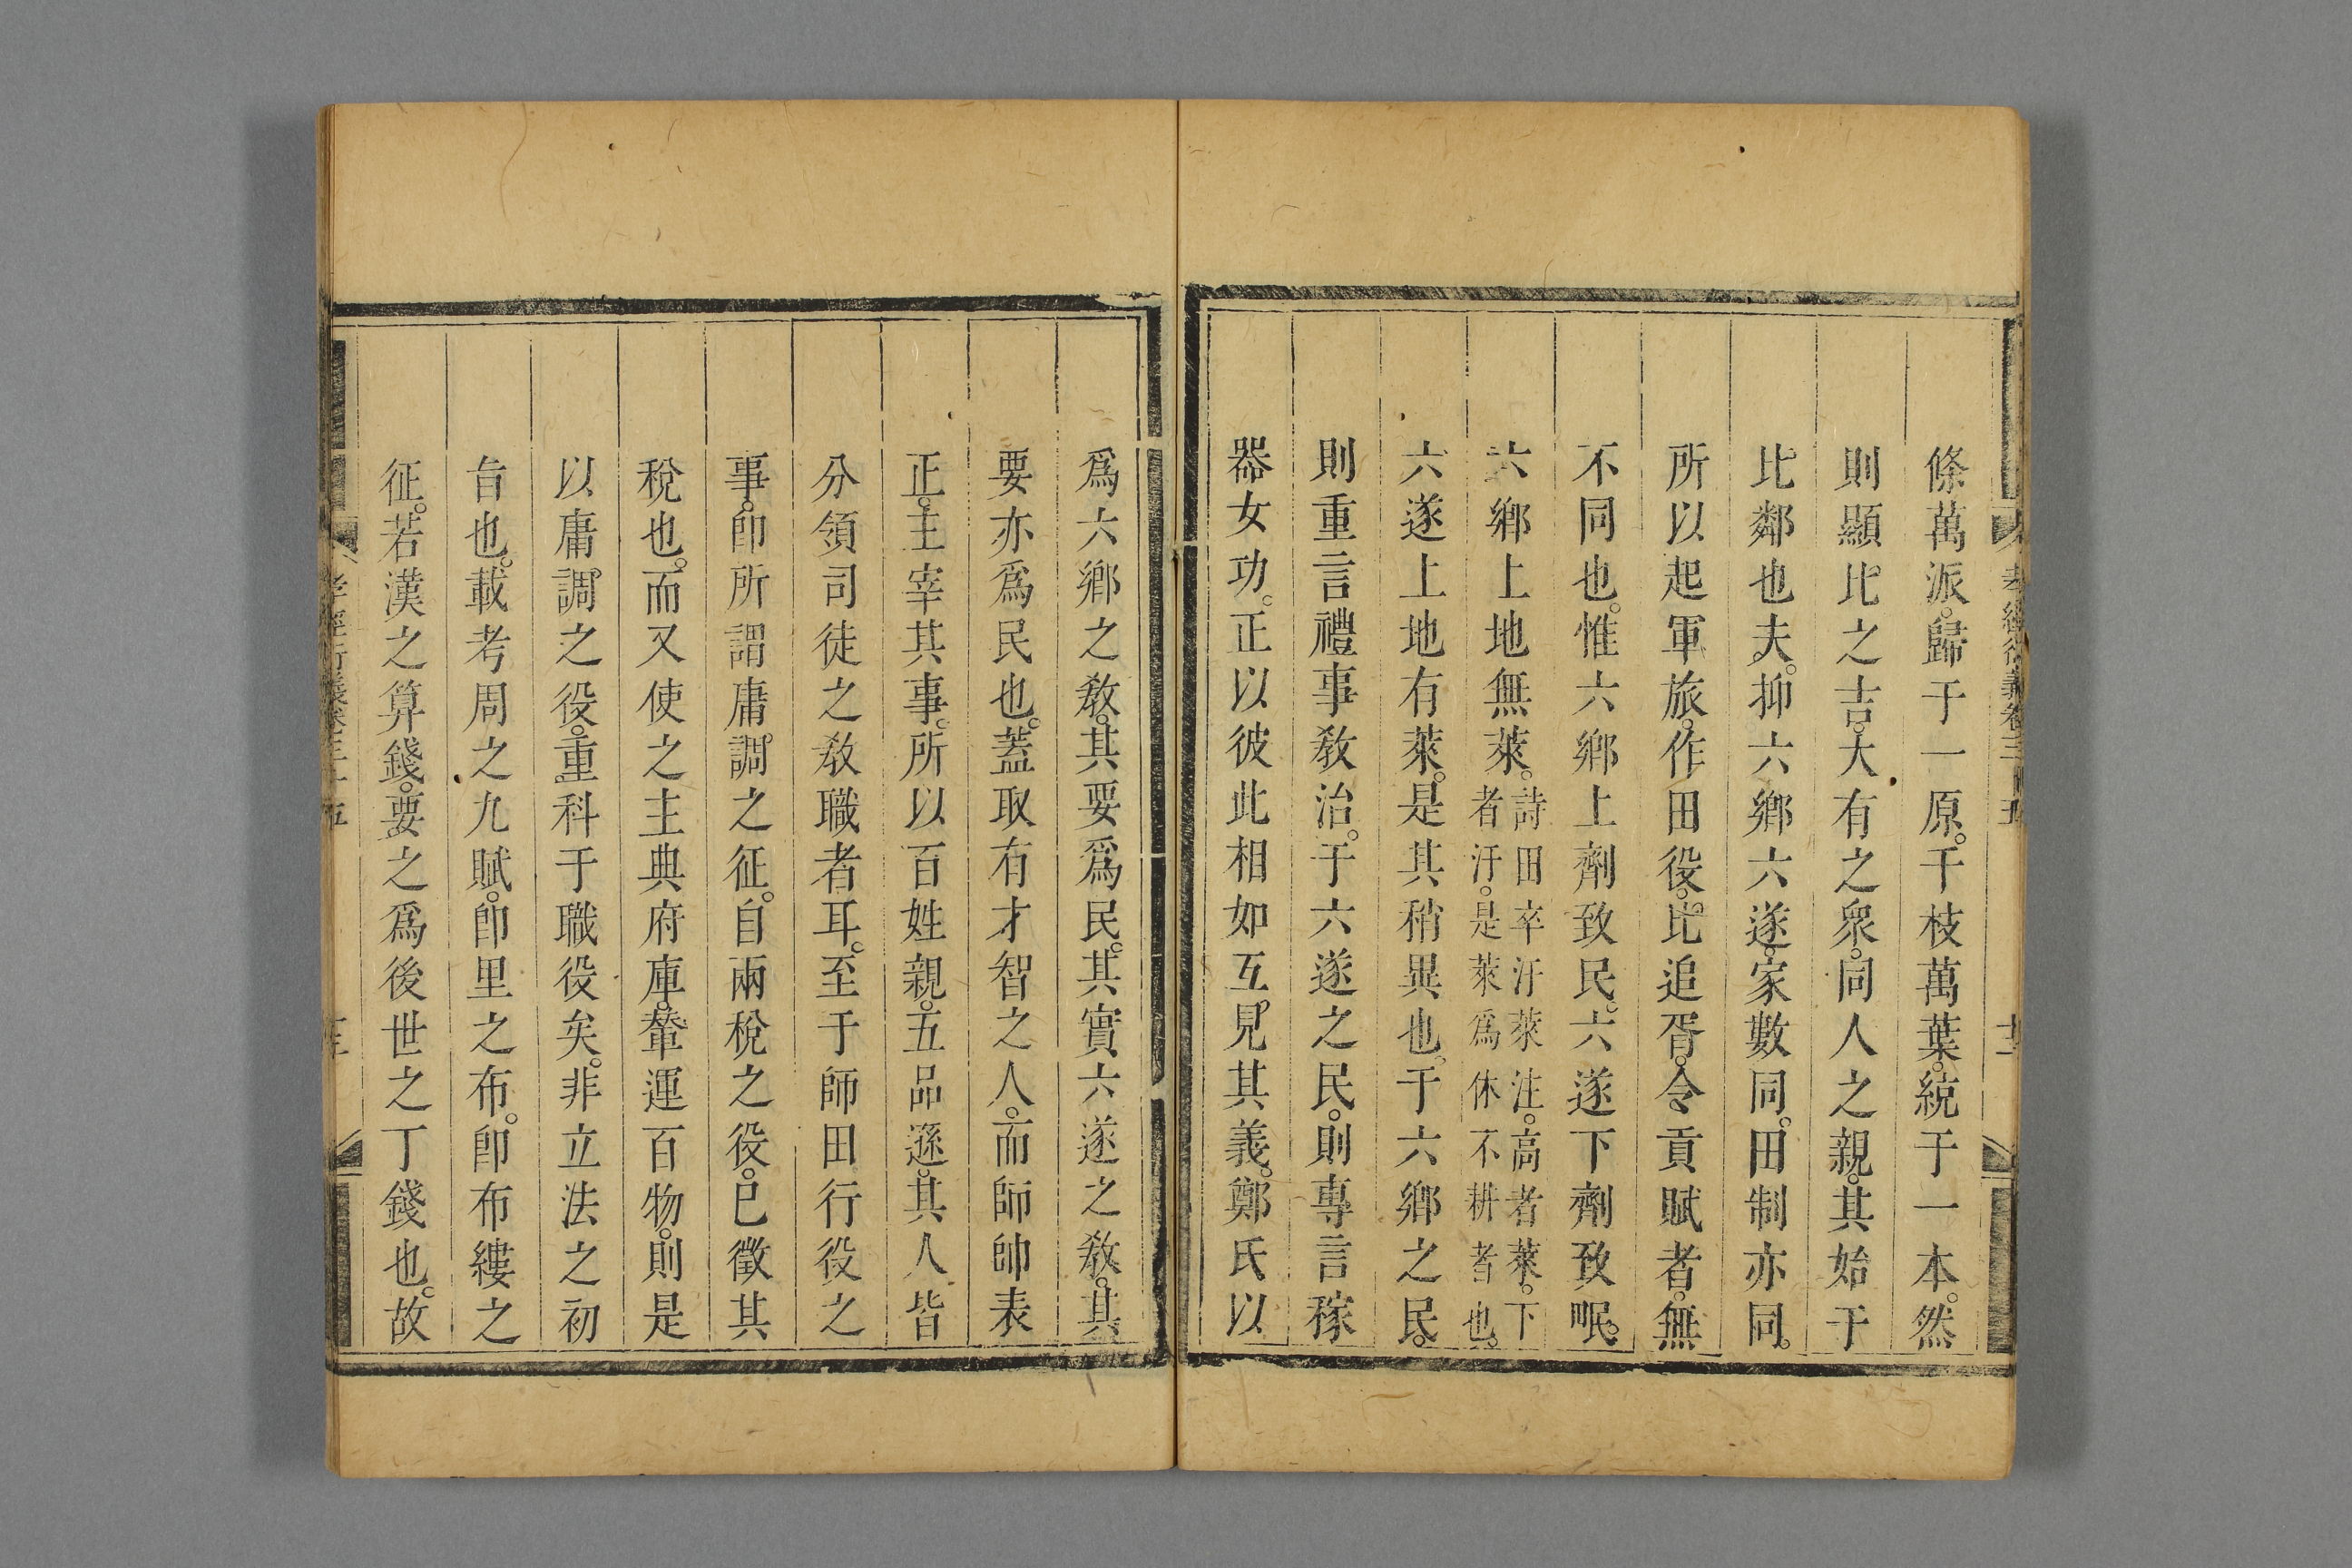 條萬派。歸于一原。千枝萬葉。統于一本。然
則顯比之吉。大有之衆。同人之親。其始于
比鄰也夫。抑六鄉六遂。家數同。田制亦同。
所以起軍旅。作田役。比追胥。令貢賦者。無
不同也。惟六鄉上劑致民。六遂下劑致甿。
六鄉上地無萊。詩田卒汙萊注。高者萊。下
者汙。是萊爲休不耕者也。
六遂上地有萊。是其稍異也。于六鄉之民。
則重言禮事敎治。于六遂之民。則專言稼
器女功。正以彼此相如互見其義。鄭氏以
爲六鄉之敎。其要爲民。其實六遂之敎。其
要亦爲民也。蓋取有才智之人。而師帥表
正。主宰其事。所以百姓親。五品遜。其人皆
分領司徒之敎職者耳。至于師田行役之
事。卽所謂庸調之征。自兩稅之役。已徵其
稅也。而又使之主典府庫。輦運百物。則是
以庸調之役。重科于職役矣。非立法之初
旨也。載考周之九賦。卽里之布。卽布縷之
征。若漢之算錢。要之爲後世之丁錢也。故